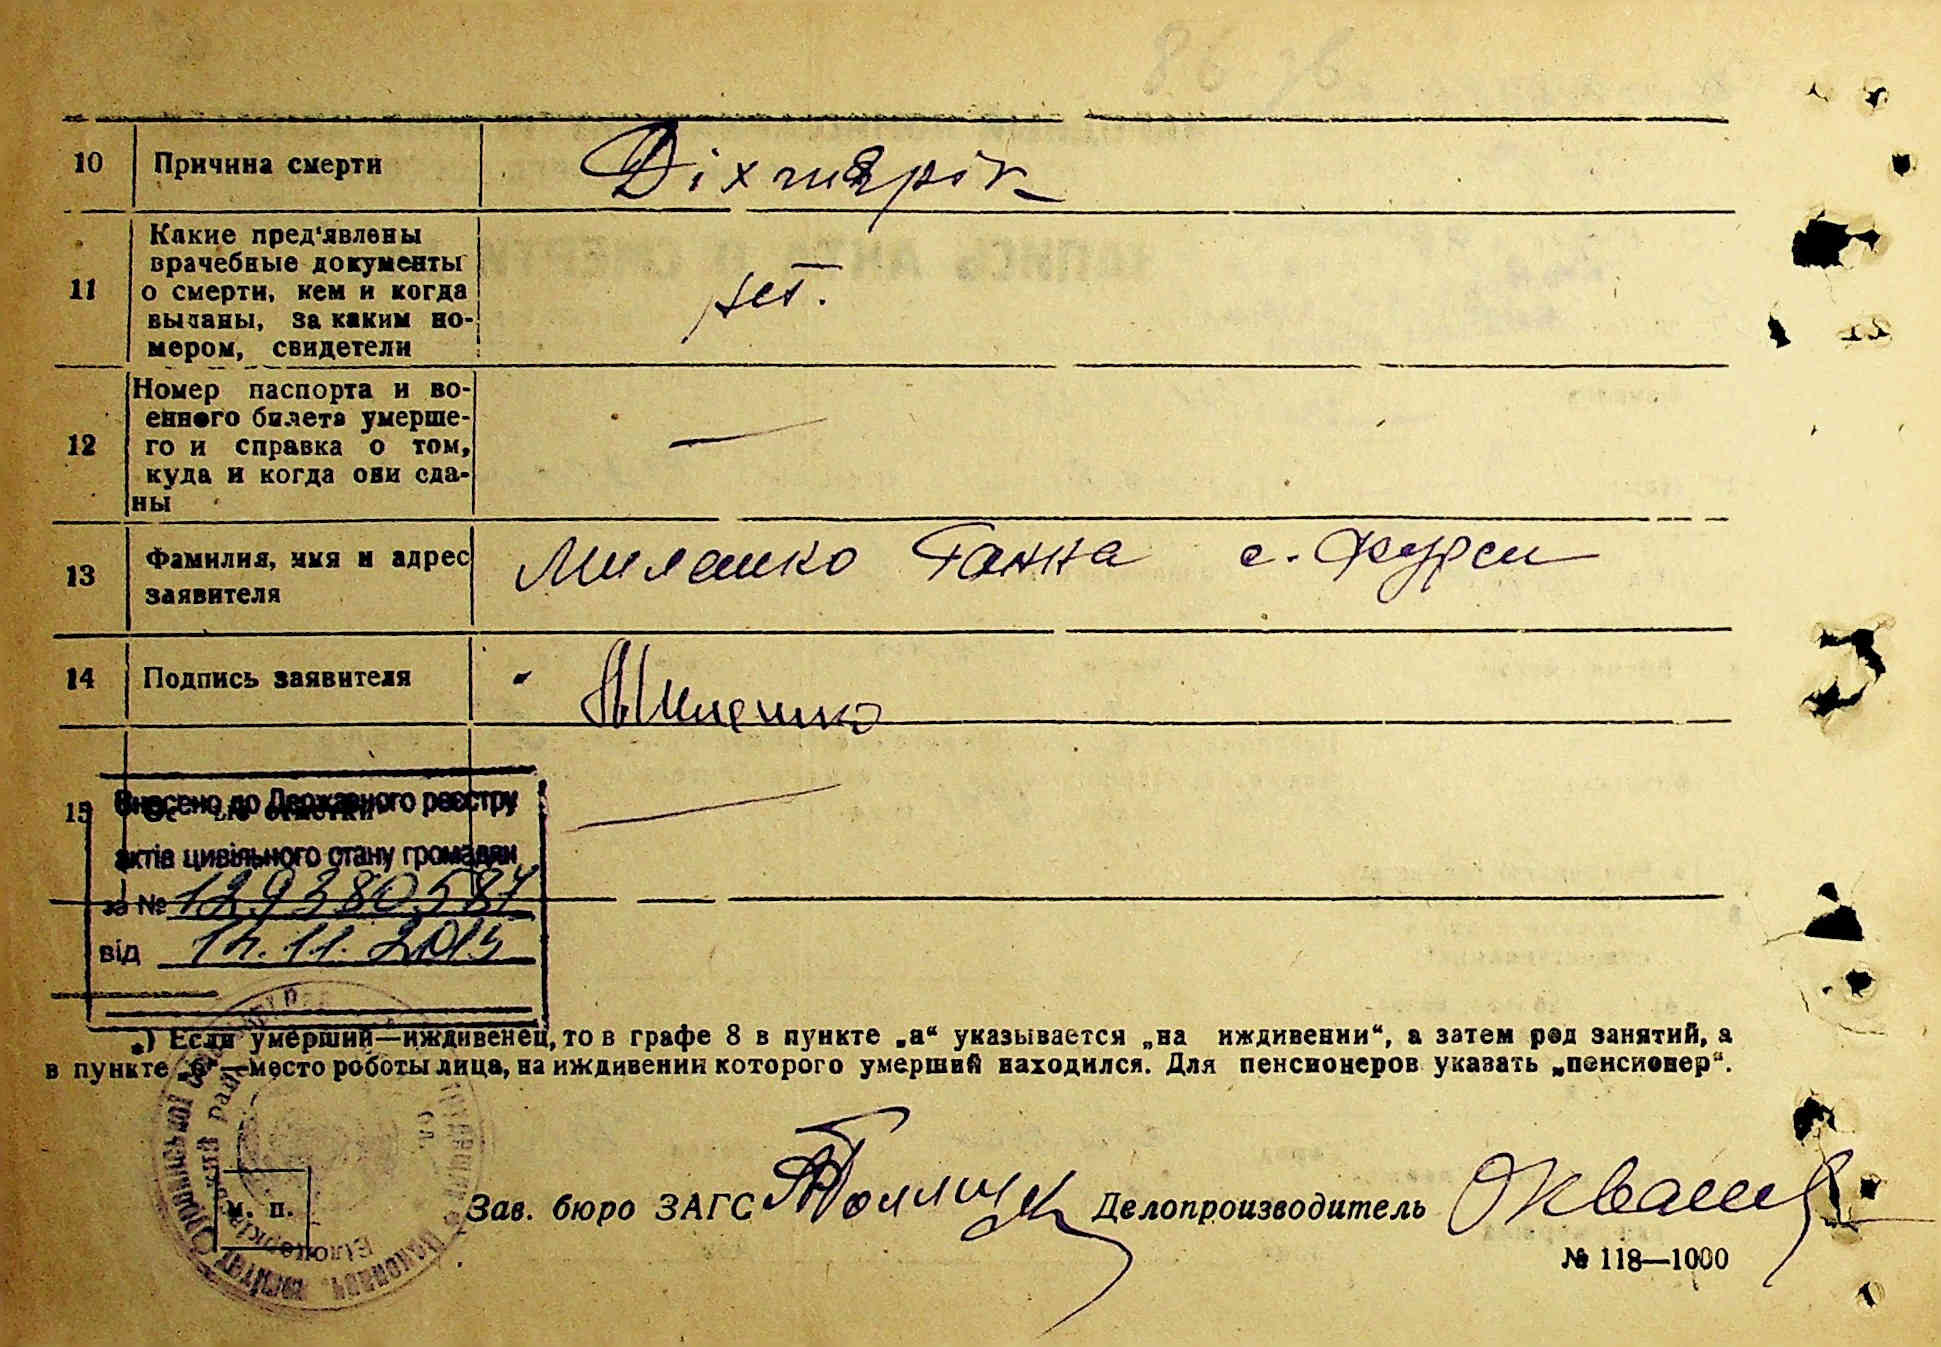 10 Причина смерти Діхтерік
11 Какие пред'явлены
врачебные документы
о смерти, кем и когда
выданы, за каким но-
мером, свидетели
12 Номер паспорта и во-
енного билета умерше-
го и справка о том,
куда и когда они сда-
ны —
13 Фамилия, имя и адрес
заявителя Милешко Ганна с. Фурси
14 Подпись заявителя Милешко
15 —
Внесено до Державного реєстру
актів цивільного стану громадян
за № 129380587
від 14.11.2015
*) Если умерший—иждивенец, то в графе 8 в пункте „а“ указывается „на иждивении“, а затем род занятий, а
в пункте „б“—место роботы лица, на иждивении которого умерший находился. Для пенсионеров указать „пенсионер“.
м. п.
Зав. бюро ЗАГС Делопроизводитель
№ 118—1000